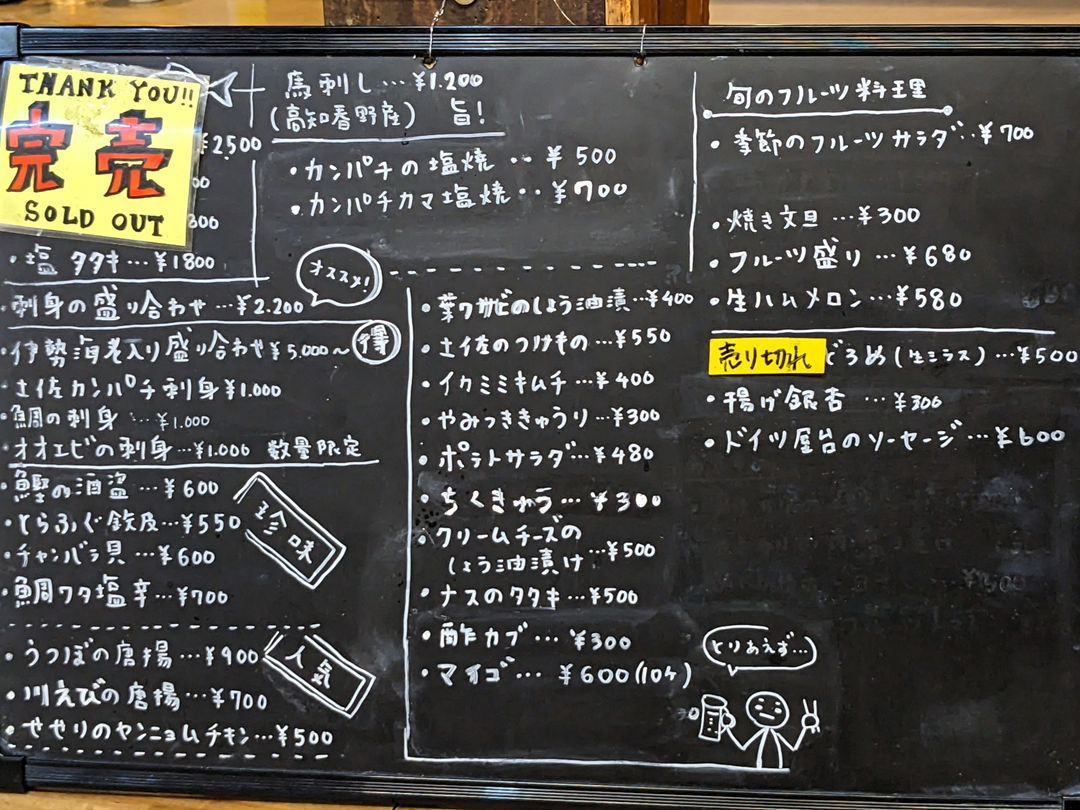 THANK YOU!!
完売
SOLD OUT
¥2500
00
300
・塩タタキ…¥1800
オススメ!
・刺身の盛り合わせ…¥2.200
・伊勢海老入り盛り合わせ¥5,000〜
得
・土佐カンパチ刺身¥1.000
・鯛の刺身…¥1.000
・オオエビの刺身…¥1.000 数量限定
・鰹の酒盗…¥600
・とらふぐ鉄皮…¥550
・チャンバラ貝…¥600
・鯛ワタ塩辛…¥700
珍味
・うつぼの唐揚…¥900
・川えびの唐揚…¥700
・せせりのヤンニョムチキン…¥500
人気
馬刺し…¥1.200
(高知春野産) 旨!
・カンパチの塩焼‥¥500
・カンパチカマ塩焼‥¥700
・葉ワサビのしょう油漬…¥400
・土佐のつけもの…¥550
・イクミミキムチ…¥400
・やみつききゅうり…¥300
・ポテトサラダ…¥480
・ちくきゅう…¥300
・クリームチーズの
しょう油漬け…¥500
・ナスのタタキ…¥500
・酢カブ…¥300
・マイゴ…¥600(10ケ)
とりあえず…
旬のフルーツ料理
・季節のフルーツサラダ‥¥700
・焼き文旦…¥300
・フルーツ盛り…¥680
・生ハムメロン…¥580
売り切れ
どろめ(生シラス)…¥500
・揚げ銀杏…¥300
・ドイツ屋台のソーセージ…¥600